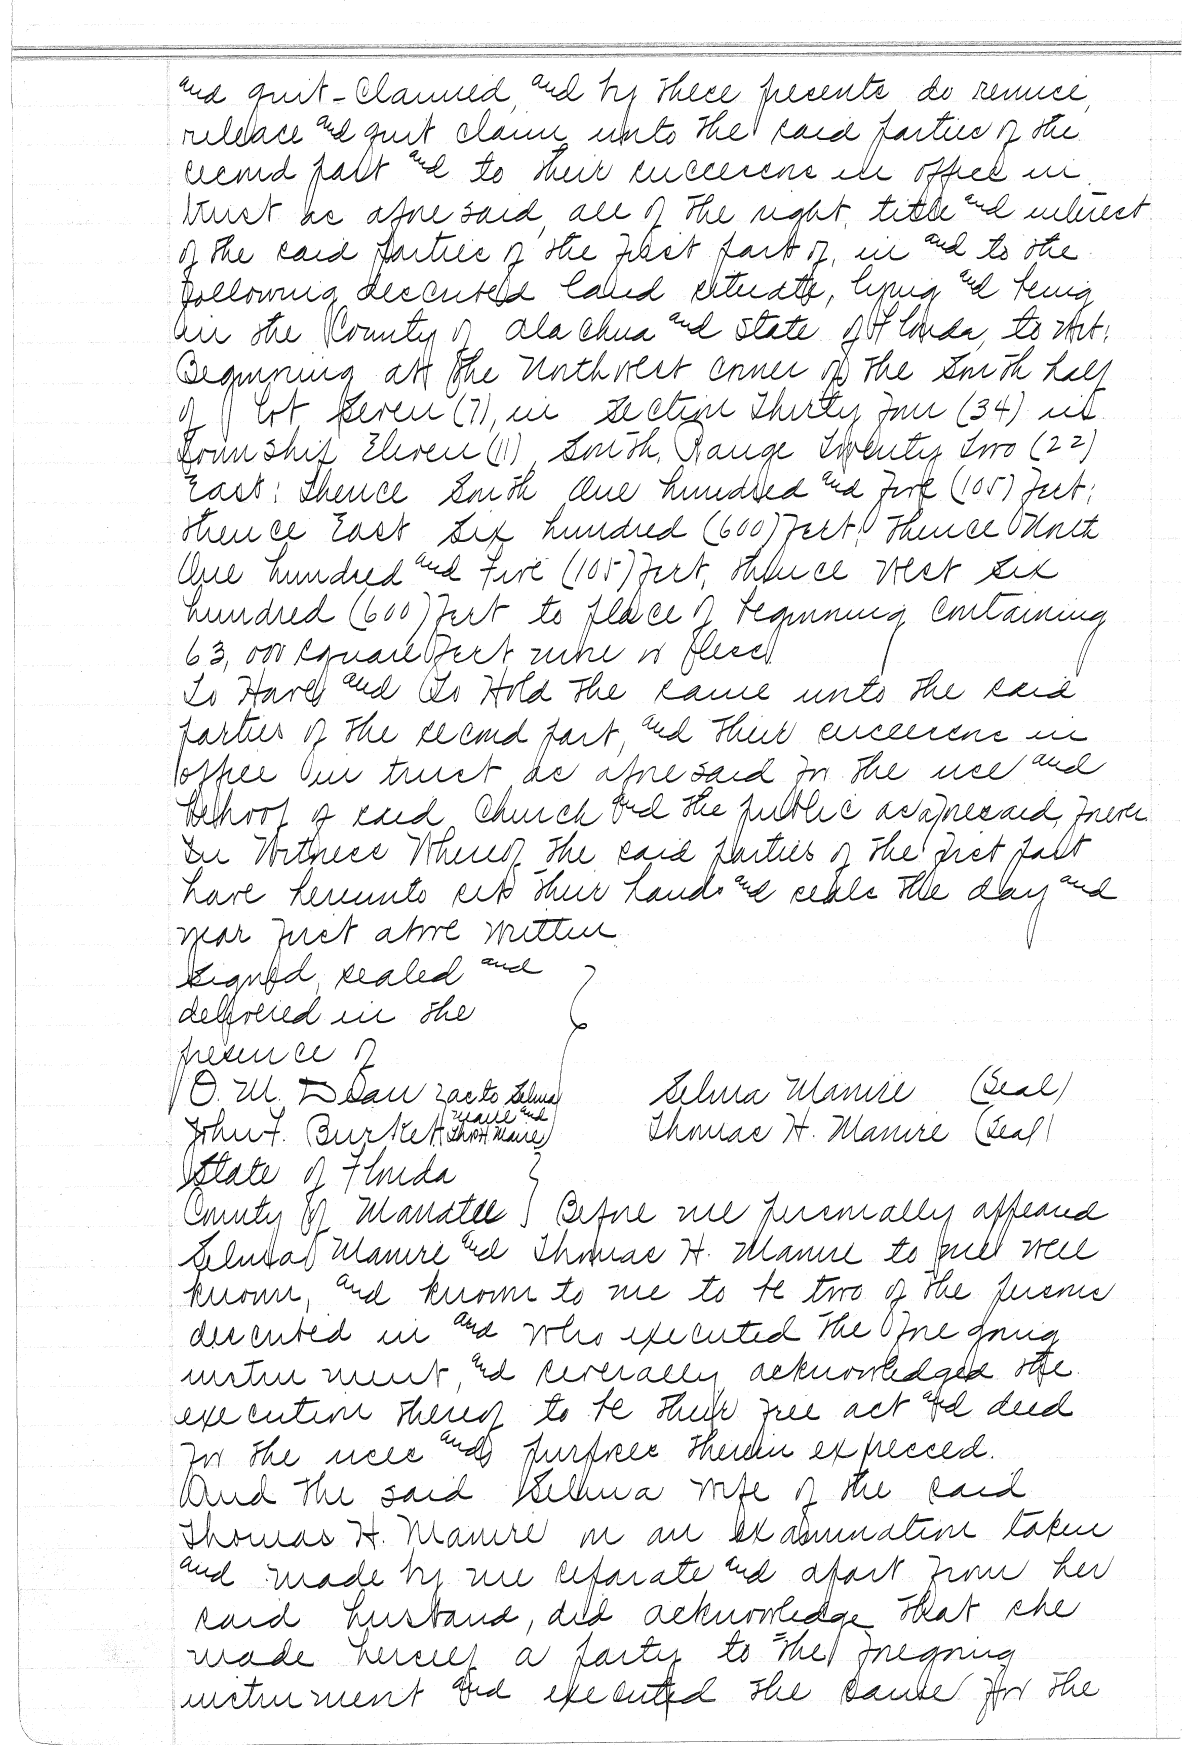 and quit-claimed, and by these presents do remise,
release and quit claim unto the said parties of the
second part and to their successors in office in
trust as afore said, all of the right, title and interest
of the said parties of the first part of, in and to the
following described land situate, lying and being
in the County of Alachua and State of Florida, to wit:
Beginning at the Northwest corner of the South half
of Lot Seven (7), in Section Thirty Four (34) in
Township Eleven (11), South, Range Twenty Two (22)
East: Thence South One hundred and Five (105) feet;
thence East Six hundred (600) feet; thence North
One hundred and Five (105) feet, thence West Six
hundred (600) feet to place of beginning containing
63,000 square feet more or less.
To Have and To Hold the same unto the said
parties of the second part, and their successors in
office in trust as afore said for the use and
behoof of said Church and the public as aforesaid, forever.
In Witness Whereof the said parties of the first part
have hereunto set their hands and seals the day and
year first above written
Signed, sealed and
delivered in the
presence of
O. M. Dean as to Selma
Manire and
John F. Burket Thos H Manire
Selma Manire (Seal)
Thomas H. Manire (Seal)
State of Florida
County of Manatee } Before me personally appeared
Selma Manire and Thomas H. Manire to me well
known, and known to me to be two of the persons
described in and who executed the fore going
instru ment, and severally acknowledged the
execution thereof to be their free act and deed
for the uses and purposes therein expressed.
And the said Selma wife of the said
Thomas H. Manire on an examination taken
and made by me separate and apart from her
said husband, did acknowledge that she
made herself a party to the foregoing
instru ment and executed the same for the